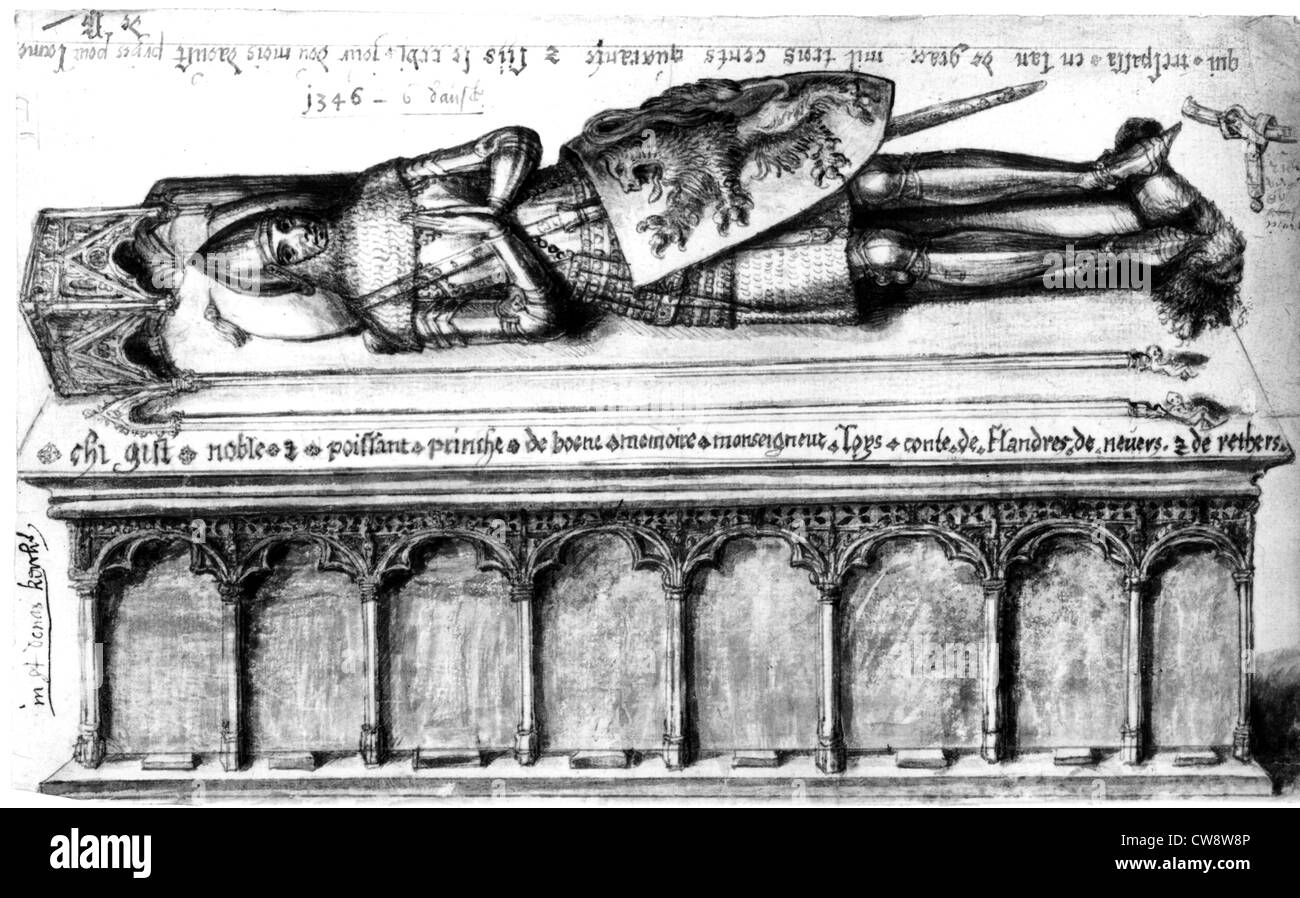 qui trespassa en lan de grace mil trois cents quarante & siis le jour dou mois daoust priies pour lame
de
1346 - 6 daust
chi gist noble & poissant prinche de boene memoire monseigneur Loys conte de Flandres de nevers & de rethers
in st denas
alamy
alamy
Image ID: CW8W8P
www.alamy.com